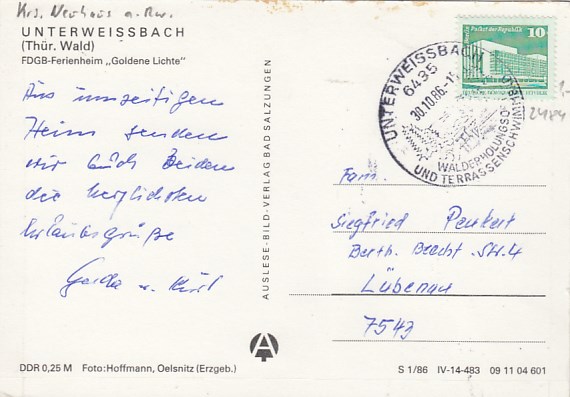 Krs. Neuhaus a. Rw.
UNTERWEISSBACH
(Thür. Wald)
FDGB-Ferienheim „Goldene Lichte"
Aus
Heim senden
wir Euch Beiden
die herzlichsten
Urlaubsgrüße
Gerda u. Kurt
AUSLESE-BILD-VERLAG BAD SALZUNGEN
Palast der Republik
10
UNTERWEISSBACH
6435
30.10.86
WALDERHOLUNGSO
UND TERRASSENSCHWIMMBA
2484
Fam.
Siegfried Penkert
Berth. Brecht-Str. 4
Lübenau
7543
DDR 0,25 M Foto: Hoffmann, Oelsnitz (Erzgeb.)
A
S 1/86 IV-14-483 09 11 04 601